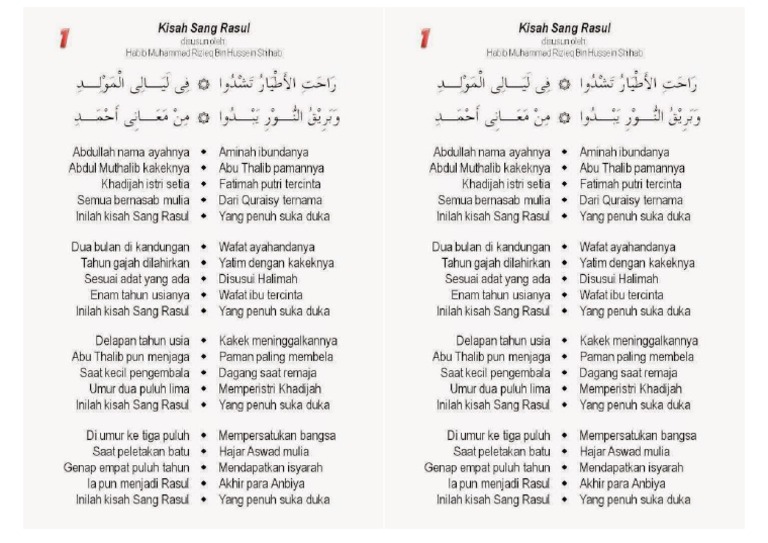 1
Kisah Sang Rasul
disusun oleh:
Habib Muhammad Rizieq Bin Hussein Shihab
رَاحَتِ الأَطْيَارُ تَشْدُوا ۞ فِى لَيَالِى الْمَوْلِدِ
وَبَرِيْقُ النُّوْرِ يَبْدُوا ۞ مِنْ مَعَانِى أَحْمَدِ
Abdullah nama ayahnya ◆ Aminah ibundanya
Abdul Muthalib kakeknya ◆ Abu Thalib pamannya
Khadijah istri setia ◆ Fatimah putri tercinta
Semua bernasab mulia ◆ Dari Quraisy ternama
Inilah kisah Sang Rasul ◆ Yang penuh suka duka
Dua bulan di kandungan ◆ Wafat ayahandanya
Tahun gajah dilahirkan ◆ Yatim dengan kakeknya
Sesuai adat yang ada ◆ Disusui Halimah
Enam tahun usianya ◆ Wafat ibu tercinta
Inilah kisah Sang Rasul ◆ Yang penuh suka duka
Delapan tahun usia ◆ Kakek meninggalkannya
Abu Thalib pun menjaga ◆ Paman paling membela
Saat kecil pengembala ◆ Dagang saat remaja
Umur dua puluh lima ◆ Memperistri Khadijah
Inilah kisah Sang Rasul ◆ Yang penuh suka duka
Di umur ke tiga puluh ◆ Mempersatukan bangsa
Saat peletakan batu ◆ Hajar Aswad mulia
Genap empat puluh tahun ◆ Mendapatkan isyarah
Ia pun menjadi Rasul ◆ Akhir para Anbiya
Inilah kisah Sang Rasul ◆ Yang penuh suka duka
1
Kisah Sang Rasul
disusun oleh:
Habib Muhammad Rizieq Bin Hussein Shihab
رَاحَتِ الأَطْيَارُ تَشْدُوا ۞ فِى لَيَالِى الْمَوْلِدِ
وَبَرِيْقُ النُّوْرِ يَبْدُوا ۞ مِنْ مَعَانِى أَحْمَدِ
Abdullah nama ayahnya ◆ Aminah ibundanya
Abdul Muthalib kakeknya ◆ Abu Thalib pamannya
Khadijah istri setia ◆ Fatimah putri tercinta
Semua bernasab mulia ◆ Dari Quraisy ternama
Inilah kisah Sang Rasul ◆ Yang penuh suka duka
Dua bulan di kandungan ◆ Wafat ayahandanya
Tahun gajah dilahirkan ◆ Yatim dengan kakeknya
Sesuai adat yang ada ◆ Disusui Halimah
Enam tahun usianya ◆ Wafat ibu tercinta
Inilah kisah Sang Rasul ◆ Yang penuh suka duka
Delapan tahun usia ◆ Kakek meninggalkannya
Abu Thalib pun menjaga ◆ Paman paling membela
Saat kecil pengembala ◆ Dagang saat remaja
Umur dua puluh lima ◆ Memperistri Khadijah
Inilah kisah Sang Rasul ◆ Yang penuh suka duka
Di umur ke tiga puluh ◆ Mempersatukan bangsa
Saat peletakan batu ◆ Hajar Aswad mulia
Genap empat puluh tahun ◆ Mendapatkan isyarah
Ia pun menjadi Rasul ◆ Akhir para Anbiya
Inilah kisah Sang Rasul ◆ Yang penuh suka duka